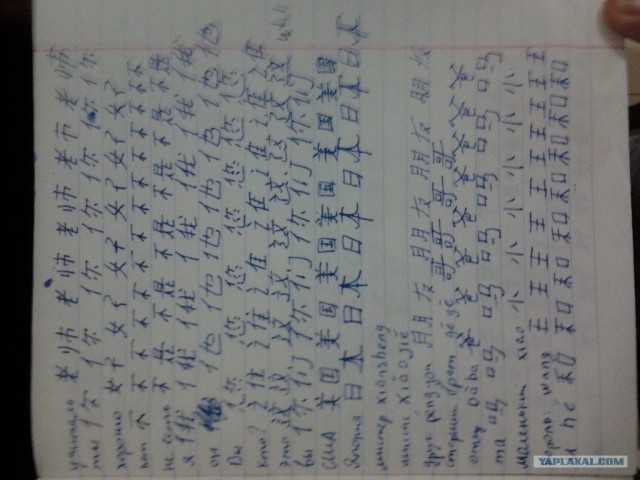 учитель 老师 老师 老师 老师 老师
ты 你 你 你 你 你 你 你 你
хорошо 好 好 好 好 好 好 好
нет 不 不 不 不 不 不 不 不 不 不 不
не есть 不是 不是 不是 不是 不是 不是
я 我 我 我 我 我 我 我
он 他 他 他 他 他 他
Вы 您 您 您 您 您 您 您
кто? 谁 谁 谁 谁 谁 谁 谁
это 这 这 这 这 这 这 这 这
вы 你们 你们 你们 你们 你们
США 美国 美国 美国 美国 美国 美国
Япония 日本 日本 日本 日本 日本 日本
мистер xiānsheng
мисс xiǎojiě
друг péngyou 朋友 朋友 朋友 朋友
старший брат gēge 哥哥 哥哥
отец bàba 爸 爸 爸 爸 爸 爸
ma 吗 吗 吗 吗 吗 吗 吗
маленький xiǎo 小 小 小 小 小 小 小
король wáng 王 王 王 王 王 王 王 王 王 王
и hé 和 和 和 和 和 和 和 和 和
YAPLAKAL.COM